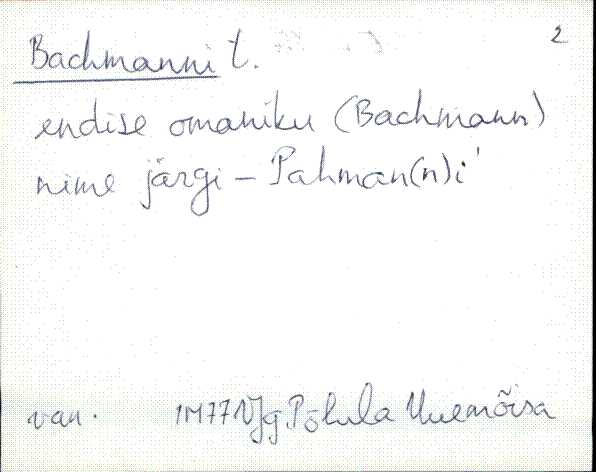 2
Bachmanni t.
endise omaniku (Bachmann)
nime järgi - Pahman(n)i'
van. 1M77VJg Põhula Uuemõisa